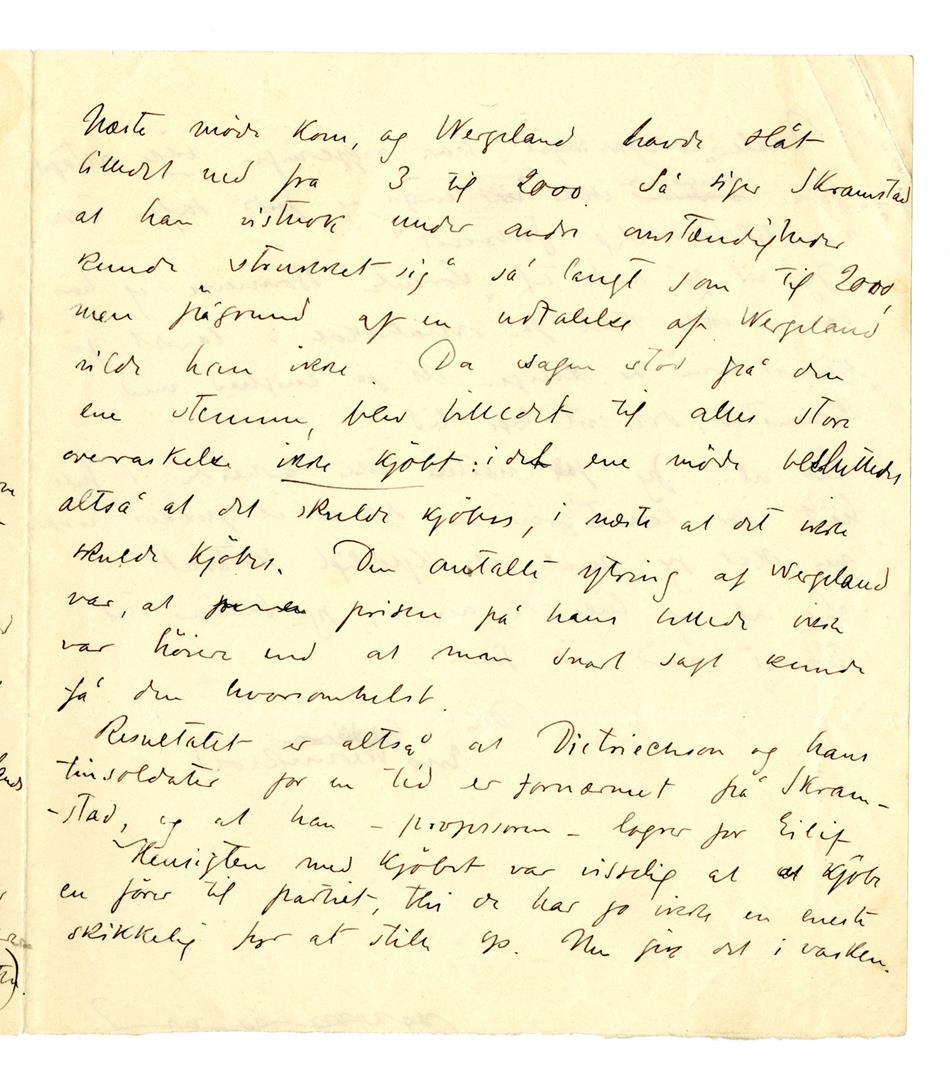 Næste möde kom, og Wergeland havde slåt
billedet ned fra 3 til 2000. Så siger Skramstad
at han vistnok under andre omstændigheder
kunde strukket sig så langt som til 2000,
men pågrund af en udtalelse af Wergeland
vilde han ikke. Da sagen stod på den
ene stemme, blev billedet til alles store
overraskelse ikke kjöbt: i det ene möde besluttedes
altså at det skulde kjöbes, i næste at det ikke
skulde kjöbes. Den omtalte ytring af Wergeland
var, at prisen på hans billede ikke
var höiere end at man snart sagt kunde
få den hvorsomhelst.
Resultatet er altså at Dietriechson og hans
tinsoldater for en tid er fornærmet på Skram-
-stad, og at han - professoren - logrer for Eilif
Hensigten med kjöbet var visselig at at kjöbe
en förer til partiet, thi de har jo ikke en eneste
skikkelig fyr at stille op. Nu gik det i vasken.